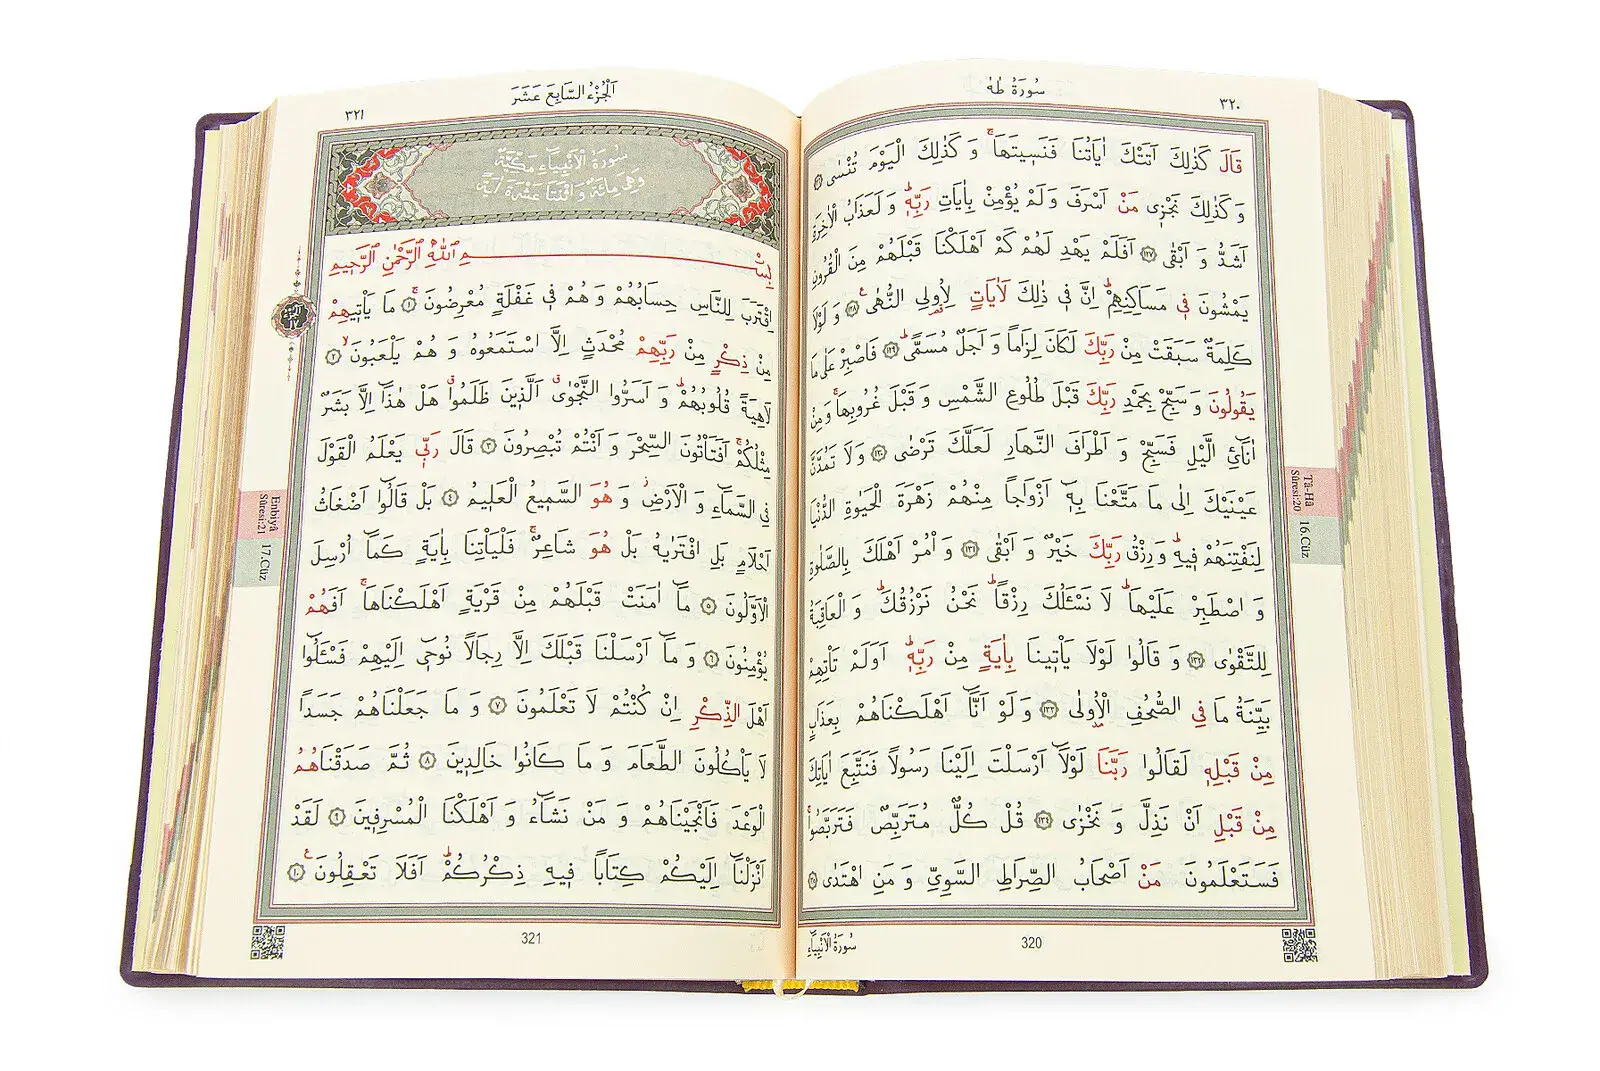 سُورَةُ طٰهٰ
٣٢٠
قَالَ كَذٰلِكَ اَتَتْكَ اٰيَاتُنَا فَنَس۪يتَهَاۚ وَ كَذٰلِكَ الْيَوْمَ تُنْسٰى ﴿١٢٦﴾
وَ كَذٰلِكَ نَجْز۪ى مَنْ اَسْرَفَ وَ لَمْ يُؤْمِنْ بِاٰيَاتِ رَبِّه۪ۜ وَ لَعَذَابُ الْاٰخِرَةِ
اَشَدُّ وَ اَبْقٰى ﴿١٢٧﴾ اَفَلَمْ يَهْدِ لَهُمْ كَمْ اَهْلَكْنَا قَبْلَهُمْ مِنَ الْقُرُونِ
يَمْشُونَ ف۪ى مَسَاكِنِهِمْۜ اِنَّ ف۪ى ذٰلِكَ لَاٰيَاتٍ لِاُو۬لِى النُّهٰى۟ ﴿١٢٨﴾ وَ لَوْلَا
كَلِمَةٌ سَبَقَتْ مِنْ رَبِّكَ لَكَانَ لِزَاماً وَ اَجَلٌ مُسَمًّىۜ ﴿١٢٩﴾ فَاصْبِرْ عَلٰى مَا
يَقُولُونَ وَ سَبِّحْ بِحَمْدِ رَبِّكَ قَبْلَ طُلُوعِ الشَّمْسِ وَ قَبْلَ غُرُوبِهَاۚ وَ مِنْ
اٰنَٓائِ الَّيْلِ فَسَبِّحْ وَ اَطْرَافَ النَّهَارِ لَعَلَّكَ تَرْضٰى ﴿١٣٠﴾ وَ لَا تَمُدَّنَّ
عَيْنَيْكَ اِلٰى مَا مَتَّعْنَا بِه۪ٓ اَزْوَاجاً مِنْهُمْ زَهْرَةَ الْحَيٰوةِ الدُّنْيَا
لِنَفْتِنَهُمْ ف۪يهِۜ وَ رِزْقُ رَبِّكَ خَيْرٌ وَ اَبْقٰى ﴿١٣١﴾ وَ اْمُرْ اَهْلَكَ بِالصَّلٰوةِ
وَ اصْطَبِرْ عَلَيْهَاۜ لَا نَسْـَٔلُكَ رِزْقاًۜ نَحْنُ نَرْزُقُكَۜ وَ الْعَاقِبَةُ
لِلتَّقْوٰى ﴿١٣٢﴾ وَ قَالُوا لَوْلَا يَأْت۪ينَا بِاٰيَةٍ مِنْ رَبِّه۪ۜ اَوَلَمْ تَأْتِهِمْ
بَيِّنَةُ مَا فِى الصُّحُفِ الْاُو۫لٰى ﴿١٣٣﴾ وَ لَوْ اَنَّٓا اَهْلَكْنَاهُمْ بِعَذَابٍ
مِنْ قَبْلِه۪ لَقَالُوا رَبَّنَا لَوْلَٓا اَرْسَلْتَ اِلَيْنَا رَسُولاً فَنَتَّبِعَ اٰيَاتِكَ
مِنْ قَبْلِ اَنْ نَذِلَّ وَ نَخْزٰى ﴿١٣٤﴾ قُلْ كُلٌّ مُتَرَبِّصٌ فَتَرَبَّصُواۚ
فَسَتَعْلَمُونَ مَنْ اَصْحَابُ الصِّرَاطِ السَّوِىِّ وَ مَنِ اهْتَدٰى ﴿١٣٥﴾
Tâ-Hâ
Sûresi:20
16.Cüz
320
سُورَةُ الْاَنْبِيَٓاءِ
اَلْجُزْءُ السَّابِعَ عَشَرَ
٣٢١
سُورَةُ الْاَنْبِيَٓاءِ مَكِّيَّةٌ
وَهِىَ مِائَةٌ وَ اثْنَتَا عَشْرَةَ اٰيَةً
بِسْمِ اللّٰهِ الرَّحْمٰنِ الرَّح۪يمِ
اِقْتَرَبَ لِلنَّاسِ حِسَابُهُمْ وَ هُمْ ف۪ى غَفْلَةٍ مُعْرِضُونَۚ ﴿١﴾ مَا يَأْت۪يهِمْ
مِنْ ذِكْرٍ مِنْ رَبِّهِمْ مُحْدَثٍ اِلَّا اسْتَمَعُوهُ وَ هُمْ يَلْعَبُونَۙ ﴿٢﴾
لَاهِيَةً قُلُوبُهُمْۜ وَ اَسَرُّوا النَّجْوٰىۗ اَلَّذ۪ينَ ظَلَمُواۗ هَلْ هٰذَٓا اِلَّا بَشَرٌ
مِثْلُكُمْۚ اَفَتَأْتُونَ السِّحْرَ وَ اَنْتُمْ تُبْصِرُونَ ﴿٣﴾ قَالَ رَبّ۪ى يَعْلَمُ الْقَوْلَ
فِى السَّمَٓاءِ وَ الْاَرْضِۘ وَ هُوَ السَّم۪يعُ الْعَل۪يمُ ﴿٤﴾ بَلْ قَالُٓوا اَضْغَاثُ
اَحْلَامٍ بَلِ افْتَرٰيهُ بَلْ هُوَ شَاعِرٌۚ فَلْيَأْتِنَا بِاٰيَةٍ كَمَٓا اُرْسِلَ
الْاَوَّلُونَ ﴿٥﴾ مَٓا اٰمَنَتْ قَبْلَهُمْ مِنْ قَرْيَةٍ اَهْلَكْنَاهَاۚ اَفَهُمْ
يُؤْمِنُونَ ﴿٦﴾ وَ مَٓا اَرْسَلْنَا قَبْلَكَ اِلَّا رِجَالاً نُوح۪ٓى اِلَيْهِمْ فَسْـَٔلُٓوا
اَهْلَ الذِّكْرِ اِنْ كُنْتُمْ لَا تَعْلَمُونَ ﴿٧﴾ وَ مَا جَعَلْنَاهُمْ جَسَداً
لَا يَأْكُلُونَ الطَّعَامَ وَ مَا كَانُوا خَالِد۪ينَ ﴿٨﴾ ثُمَّ صَدَقْنَاهُمُ
الْوَعْدَ فَاَنْجَيْنَاهُمْ وَ مَنْ نَشَٓاءُ وَ اَهْلَكْنَا الْمُسْرِف۪ينَ ﴿٩﴾ لَقَدْ
اَنْزَلْنَٓا اِلَيْكُمْ كِتَاباً ف۪يهِ ذِكْرُكُمْۜ اَفَلَا تَعْقِلُونَ۟ ﴿١٠﴾
Enbiyâ
Sûresi:21
17.Cüz
321